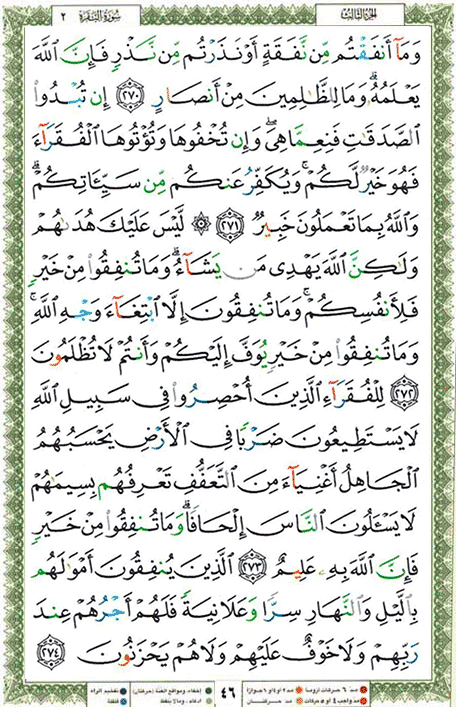 الجزء الثالث
سورة البقرة ٢
وَمَآ أَنفَقْتُم مِّن نَّفَقَةٍ أَوْ نَذَرْتُم مِّن نَّذْرٍ فَإِنَّ ٱللَّهَ
يَعْلَمُهُۥ ۗ وَمَا لِلظَّٰلِمِينَ مِنْ أَنصَارٍ ٢٧٠ إِن تُبْدُوا۟
ٱلصَّدَقَٰتِ فَنِعِمَّا هِىَ ۖ وَإِن تُخْفُوهَا وَتُؤْتُوهَا ٱلْفُقَرَآءَ
فَهُوَ خَيْرٌ لَّكُمْ ۚ وَيُكَفِّرُ عَنكُم مِّن سَيِّـَٔاتِكُمْ ۗ
وَٱللَّهُ بِمَا تَعْمَلُونَ خَبِيرٌ ٢٧١ ۞ لَّيْسَ عَلَيْكَ هُدَىٰهُمْ
وَلَٰكِنَّ ٱللَّهَ يَهْدِى مَن يَشَآءُ ۗ وَمَا تُنفِقُوا۟ مِنْ خَيْرٍ
فَلِأَنفُسِكُمْ ۚ وَمَا تُنفِقُونَ إِلَّا ٱبْتِغَآءَ وَجْهِ ٱللَّهِ ۚ
وَمَا تُنفِقُوا۟ مِنْ خَيْرٍ يُوَفَّ إِلَيْكُمْ وَأَنتُمْ لَا تُظْلَمُونَ
٢٧٢ لِلْفُقَرَآءِ ٱلَّذِينَ أُحْصِرُوا۟ فِى سَبِيلِ ٱللَّهِ
لَا يَسْتَطِيعُونَ ضَرْبًا فِى ٱلْأَرْضِ يَحْسَبُهُمُ
ٱلْجَاهِلُ أَغْنِيَآءَ مِنَ ٱلتَّعَفُّفِ تَعْرِفُهُم بِسِيمَٰهُمْ
لَا يَسْـَٔلُونَ ٱلنَّاسَ إِلْحَافًا ۗ وَمَا تُنفِقُوا۟ مِنْ خَيْرٍ
فَإِنَّ ٱللَّهَ بِهِۦ عَلِيمٌ ٢٧٣ ٱلَّذِينَ يُنفِقُونَ أَمْوَٰلَهُم
بِٱلَّيْلِ وَٱلنَّهَارِ سِرًّا وَعَلَانِيَةً فَلَهُمْ أَجْرُهُمْ عِندَ
رَبِّهِمْ وَلَا خَوْفٌ عَلَيْهِمْ وَلَا هُمْ يَحْزَنُونَ ٢٧٤
مد ٦ حركات لزوماً مد ٢ او ٤ او ٦ جوازاً ٤٦ إخفاء، ومواقع الغنة (حركتان) تفخيم الراء
مد واجب ٤ او ٥ حركات مد حركتان ادغام، وما لا يلفظ قلقلة